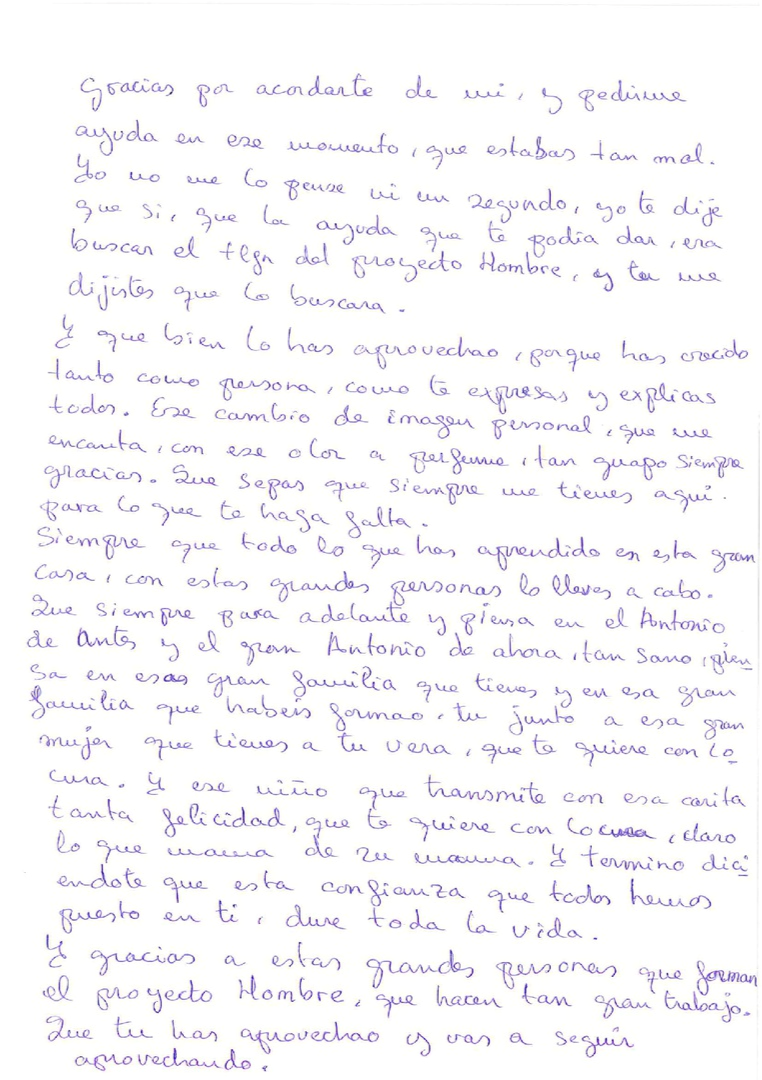 Gracias por acordarte de mi, y pedirme
ayuda en ese momento, que estabas tan mal.
Yo no me lo pense ni un segundo, yo te dije
que si, que la ayuda que te podia dar, era
buscar el tlfn del proyecto Hombre, y tu me
dijistes que lo buscara.
Y que bien lo has aprovechao, porque has crecido
tanto como persona, como te expresas y explicas
todos. Ese cambio de imagen personal, que me
encanta, con ese olor a perfume, tan guapo siempre
gracias. Que sepas que siempre me tienes aquí.
para lo que te haga falta.
Siempre que todo lo que has aprendido en esta gran
Casa, con estas grandes personas lo lleves a cabo.
Que siempre para adelante y piensa en el Antonio
de antes y el gran Antonio de ahora, tan sano, pien
sa en esas gran familia que tienes y en esa gran
familia que habeis formao, tu junto a esa gran
mujer que tienes a tu vera, que te quiere con lo
cura. Y ese niño que transmite con esa carita
tanta felicidad, que te quiere con locura, claro
lo que mama de zu mama. Y termino dici
endote que esta confianza que todos hemos
puesto en ti, dure toda la vida.
Y gracias a estas grandes personas que forman
el proyecto Hombre, que hacen tan gran trabajo.
Que tu has aprovechao y vas a seguir
aprovechando.